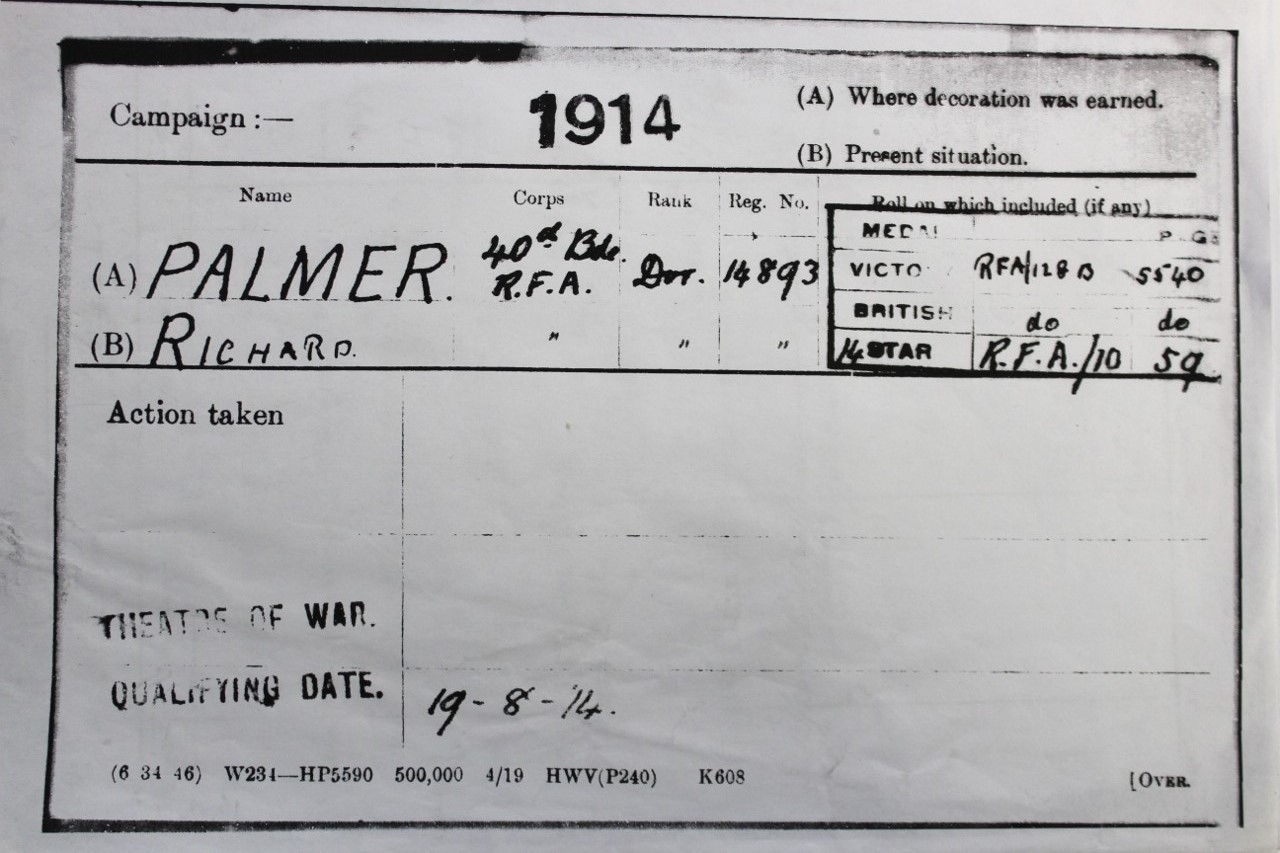 Campaign :— 1914 (A) Where decoration was earned.
(B) Present situation.
Name Corps Rank Reg. No. Roll on which included (if any)
MEDAL P G
(A) PALMER. 40th Bde. R.F.A. Dvr. 14893 VICTO RFA/128 B 5540
BRITISH do do
(B) RICHARD. " " " 14 STAR R.F.A./10 59
Action taken
THEATRE OF WAR.
QUALIFYING DATE. 19-8-14.
(6 34 46) W234—HP5590 500,000 4/19 HWV(P240) K608 [OVER.